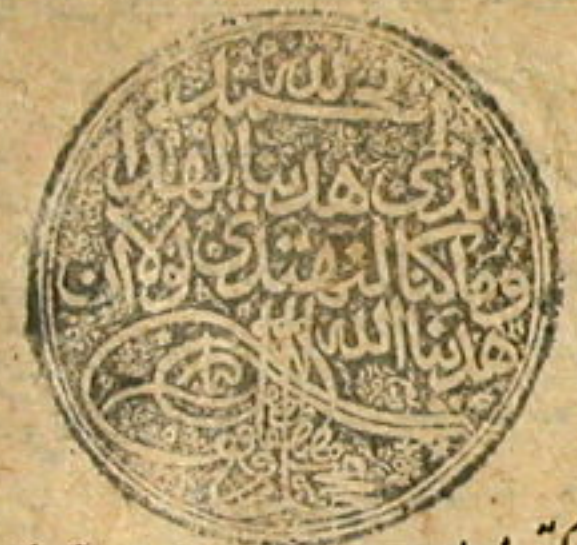 الحمد لله
الذى هدينا لهذا
وما كنا لنهتدى لولا ان
هدينا الله
مصطفى